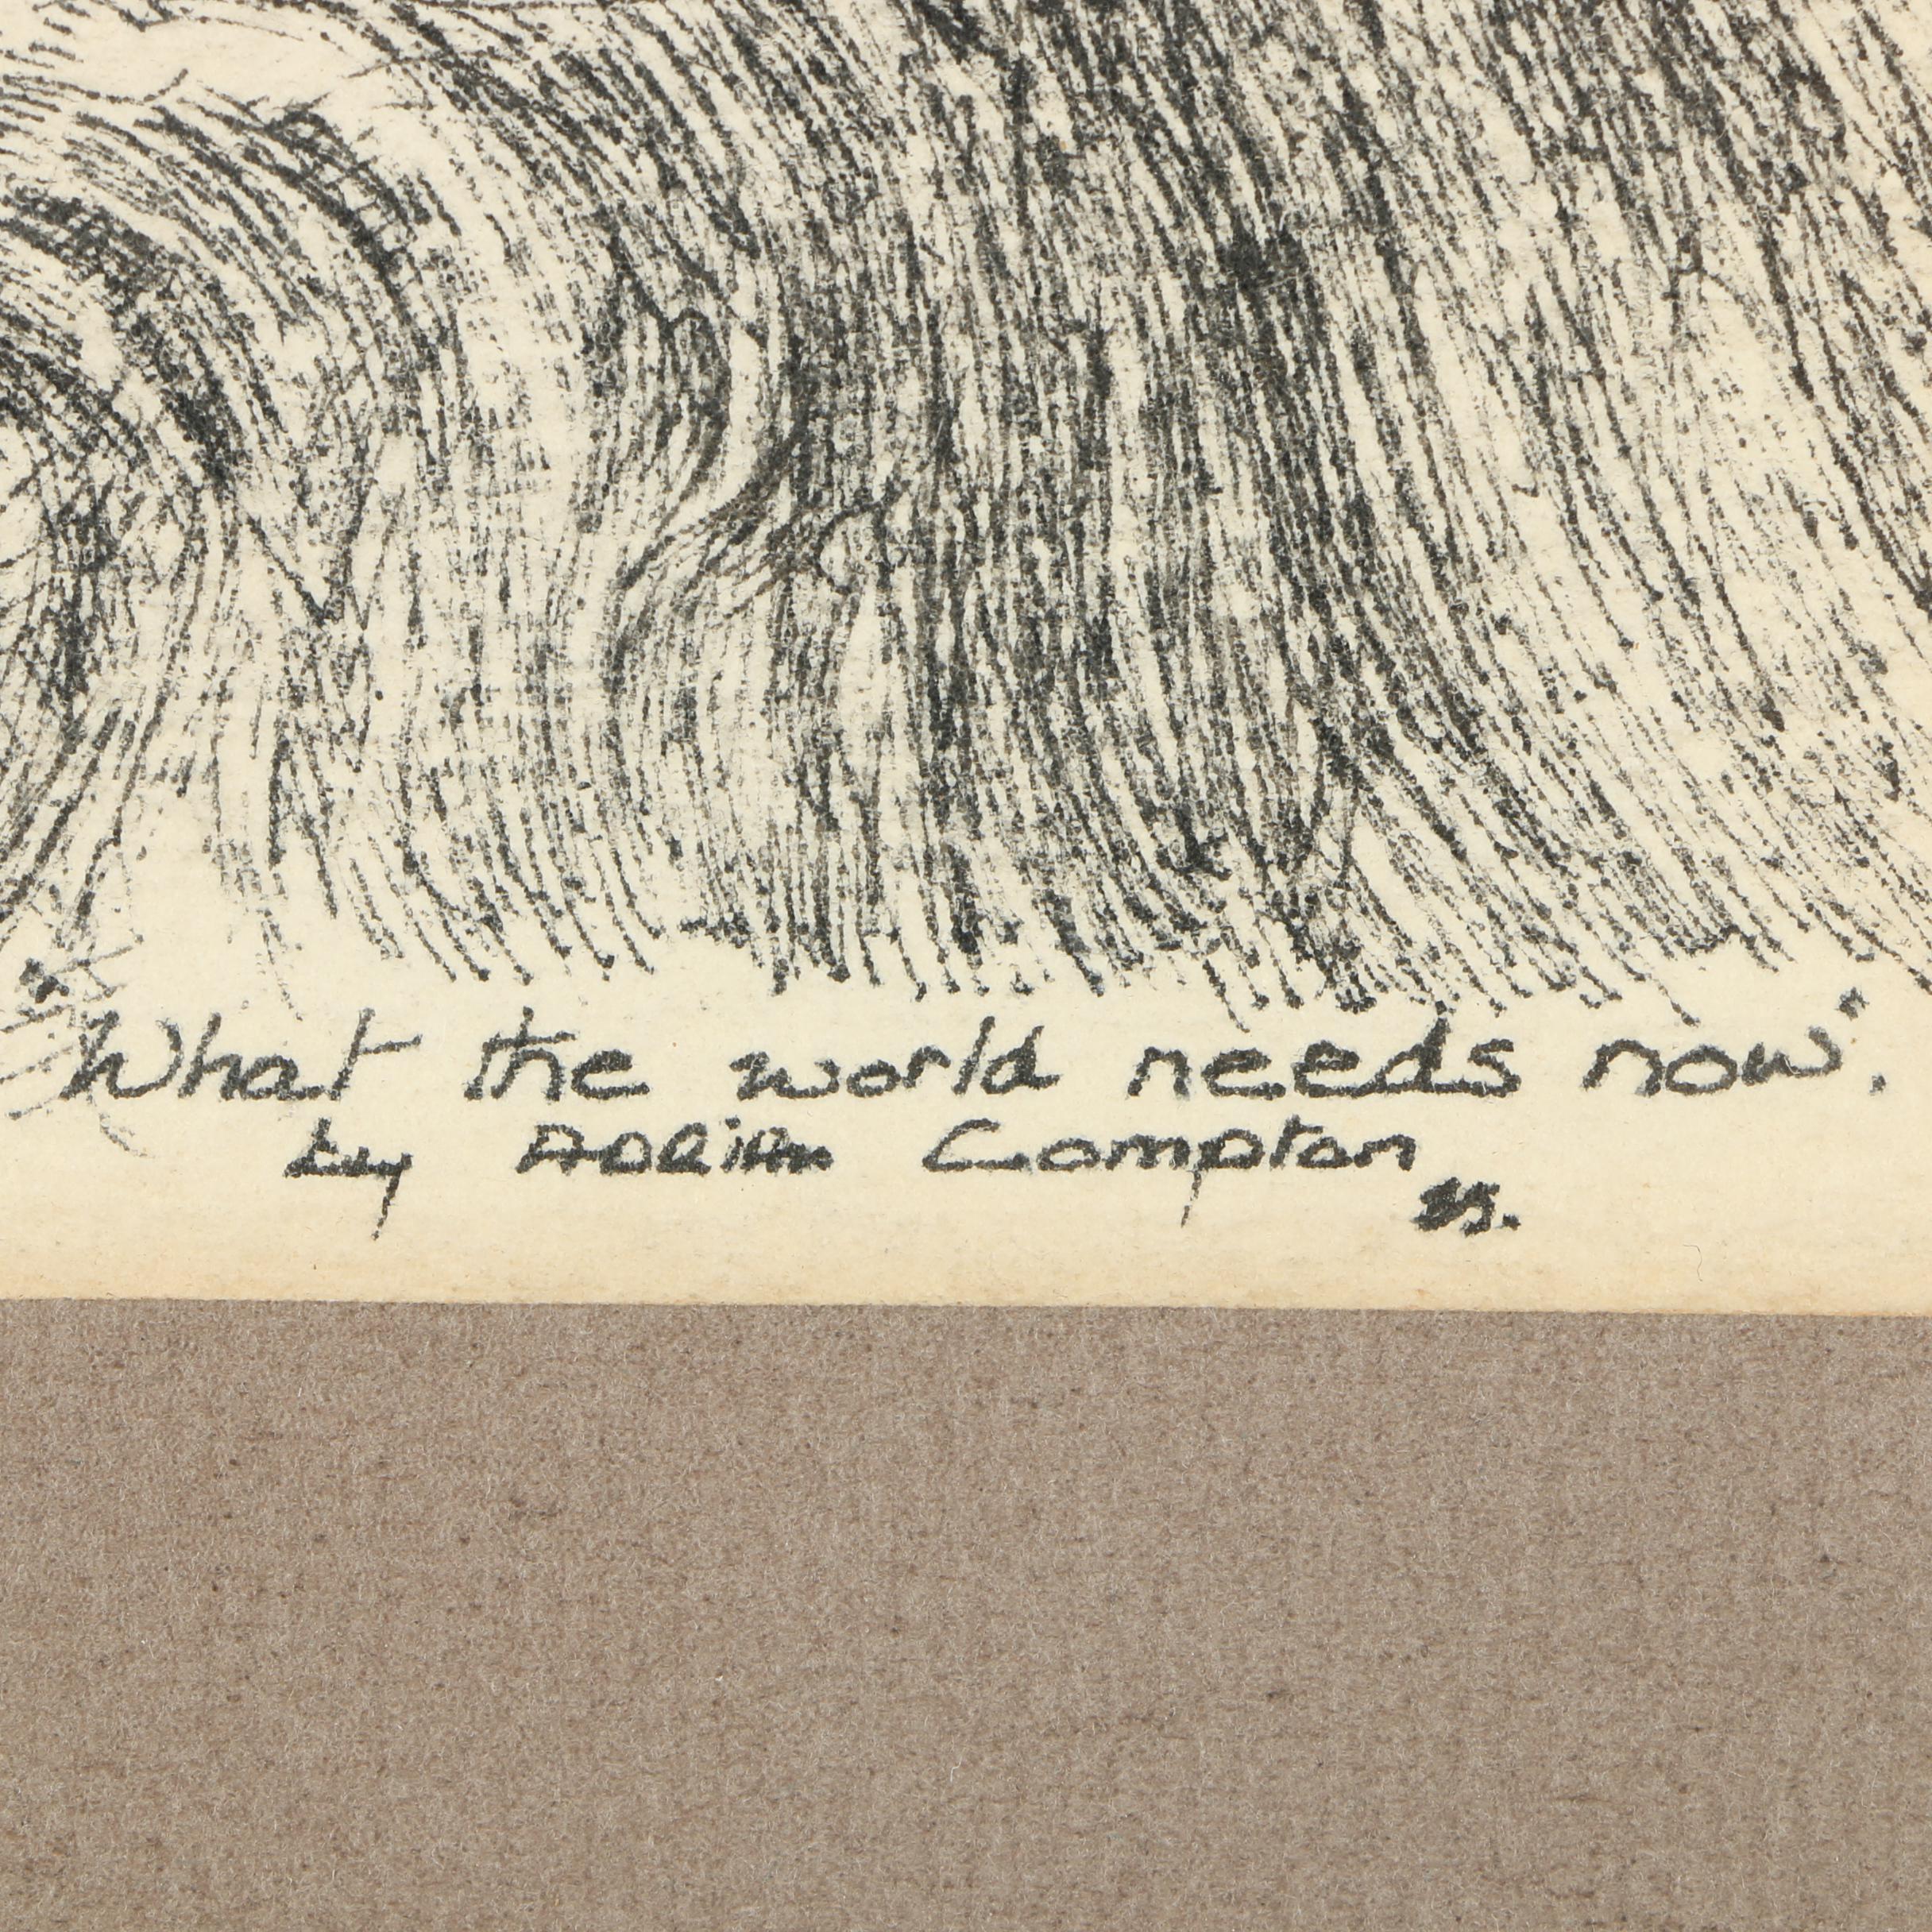 "What the world needs now".
by ADRiAn Compton